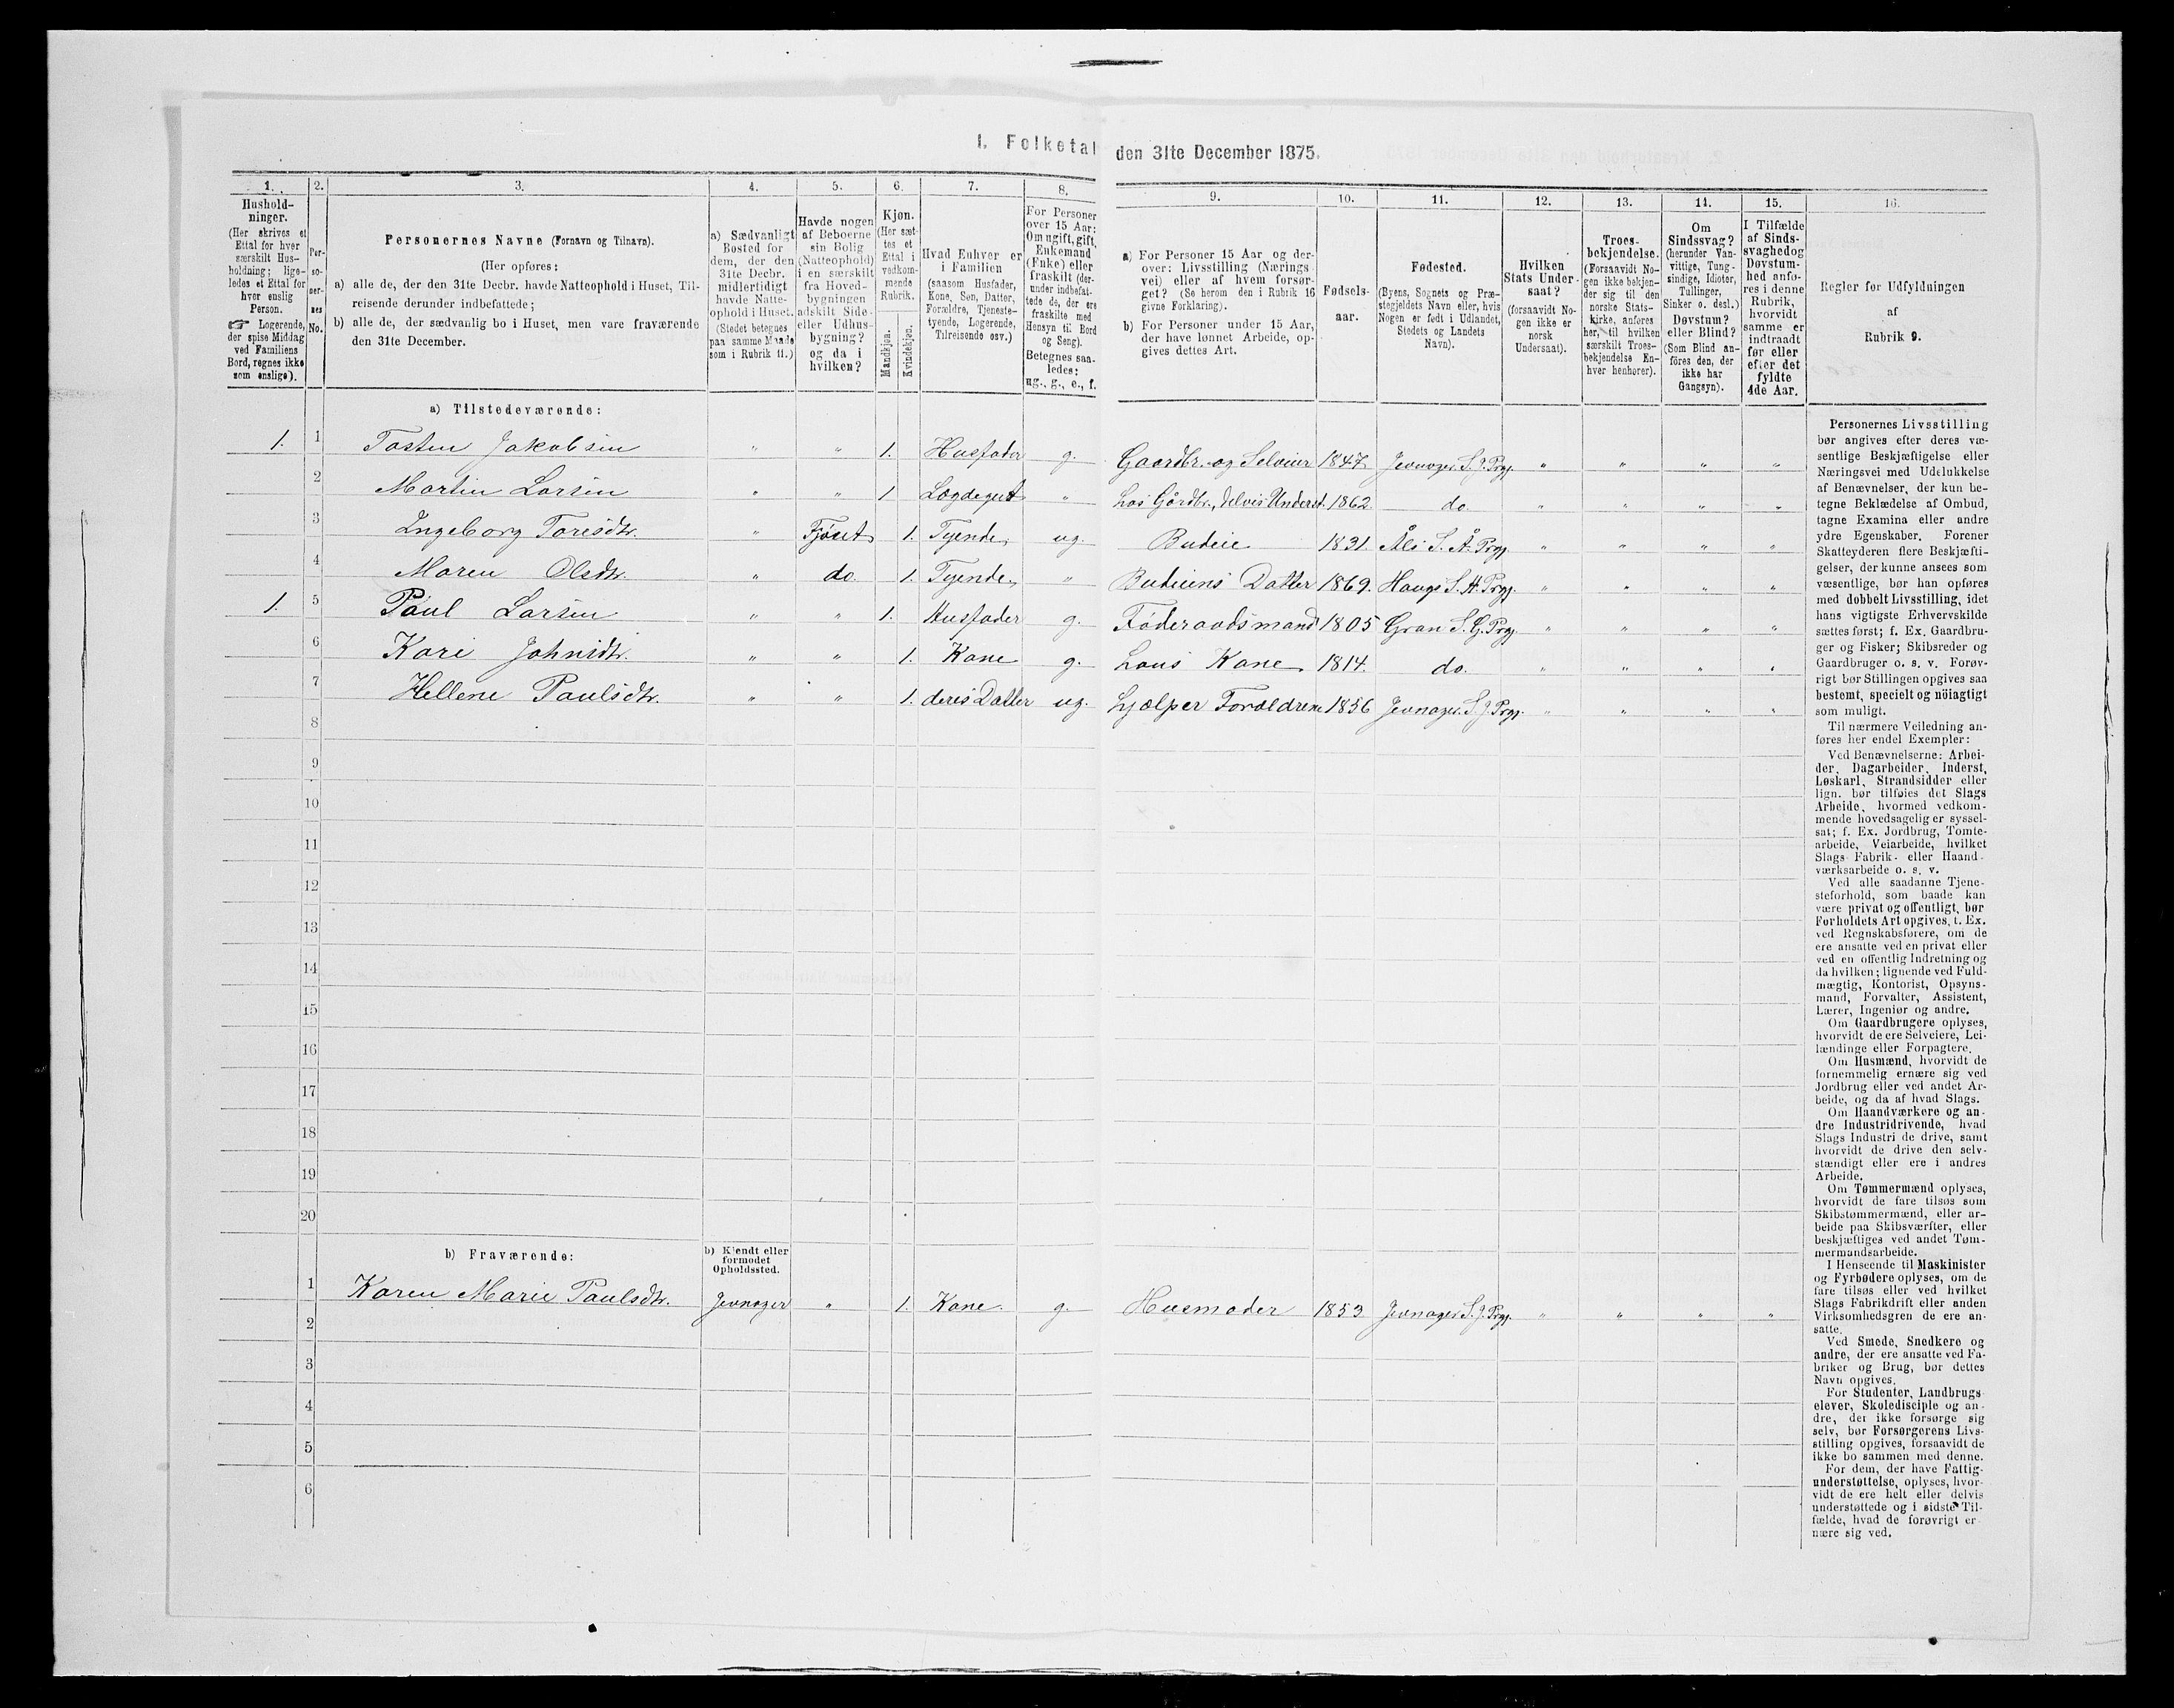 I. Folketal den 31te December 1875.
1. 2. 3. 4. 5. 6. 7. 8. 9. 10. 11. 12. 13. 14. 15. 16.
Hushold-
ninger.
(Her skrives et
Ettal for hver
særskilt Hus-
holdning; lige-
ledes et Ettal for
hver enslig
Person.
☞ Logerende,
der spise Middag
ved Familiens
Bord, regnes ikke
som enslige).
Per-
so-
ner-
nes
No.
Personernes Navne (Fornavn og Tilnavn).
(Her opføres:
a) alle de, der den 31te Decbr. havde Natteophold i Huset, Til-
reisende derunder indbefattede;
b) alle de, der sædvanlig bo i Huset, men vare fraværende
den 31te December.
a) Sædvanligt
Bosted for
dem, der den
31te Decbr.
midlertidigt
havde Natte-
ophold i Huset.
(Stedet betegnes
paa samme Maade
som i Rubrik 11.)
Havde nogen
af Beboerne
sin Bolig
(Natteophold)
i en særskilt
fra Hoved-
bygningen
adskilt Side-
eller Udhus-
bygning?
og da i
hvilken?
Kjøn.
(Her sæt-
tes et
Ettal i
vedkom-
mende
Rubrik.
Mandkjøn.
Kvindekjøn.
Hvad Enhver er
i Familien
(saasom Husfader,
Kone, Søn, Datter,
Forældre, Tjeneste-
tyende, Logerende,
Tilreisende osv.)
For Personer
over 15 Aar:
Om ugift, gift,
Enkemand
(Enke) eller
fraskilt (der-
under indbefat-
tede de, der ere
fraskilte med
Hensyn til Bord
og Seng).
Betegnes saa-
ledes:
ug., g., e., f.
a) For Personer 15 Aar og der-
over: Livsstilling (Nærings
vei) eller af hvem forsør-
get? (Se herom den i Rubrik 16
givne Forklaring).
b) For Personer under 15 Aar,
der have lønnet Arbeide, op-
gives dettes Art.
Fødsels-
aar.
Fødested.
(Byens, Sognets og Præ-
stegjeldets Navn eller, hvis
Nogen er født i Udlandet,
Stedets og Landets
Navn).
Hvilken
Stats Under-
saat?
(forsaavidt No-
gen ikke er
norsk
Undersaat).
Troes-
bekjendelse.
(Forsaavidt No-
gen ikke bekjen-
der sig til den
norske Stats-
kirke, anføres
her, til hvilken
særskilt Troes-
bekjendelse En-
hver henhører).
Om
Sindssvag?
(herunder Van-
vittige, Tung-
sindige, Idioter,
Tullinger,
Sinker o. desl.)
Døvstum?
eller Blind?
(Som Blind an-
föres den, der
ikke har
Gangsyn).
I Tilfælde
af Sinds-
svaghed og
Døvstum-
hed anfø-
res i denne
Rubrik,
hvorvidt
samme er
indtraadt
før eller
efter det
fyldte
4de Aar.
Regler for Udfyldningen
af
Rubrik 9.
a) Tilstedeværende:
1. 1 Tosten Jakobsen " " 1. Husfader g. Gaardbr. og Selveier 1847 Jevnager S. J. Prgj. " " " "
2 Martin Larsen " " 1 Lægdegut " hos Gårdbr., delvis Underst. 1862 do " " " "
3 Ingeborg Torisdtr. " Fjøset 1. Tyende ug. Budeie 1831. Åls S. Å. Prgj. " " " "
4 Maren Olsdtr. " do 1. Tyende " Budeiens Datter 1869. Haugs S. H. Prgj. " " " "
1. 5 Paul Larsen " " 1. Husfader g. Føderaadsmand 1805 Gran S. G. Prgj. " " " "
6 Kari Johnsdtr. " " 1. Kone g. hans Kone 1814. do. " " " "
7 Hellene Paulsdtr. " " 1. deres Datter ug. hjælper Forældrene 1856 Jevnager S. J. Prgj. " " " "
8
9
10
11
12
13
14
15
16
17
18
19
20
b) Fraværende:
b) Kjendt eller
formodet
Opholdssted.
1 Karen Marie Paulsdtr. Jevnager " 1. Kone g. Husmoder 1853 Jevnager S. J. Prgj. " " " "
2
3
4
5
6
Personernes Livsstilling
bør angives efter deres væ-
sentlige Beskjæftigelse eller
Næringsvei med Udelukkelse
af Benævnelser, der kun be-
tegne Beklædelse af Ombud,
tagne Examina eller andre
ydre Egenskaber. Forener
Skatteyderen flere Beskjæfti-
gelser, der kunne ansees som
væsentlige, bør han opføres
med dobbelt Livsstilling, idet
hans vigtigste Erhvervskilde
sættes først; f. Ex. Gaardbru-
ger og Fisker; Skibsreder og
Gaardbruger o. s. v. Forøv-
rigt bør Stillingen opgives saa
bestemt, specielt og nöiagtigt
som muligt.
Til nærmere Veiledning an-
føres her endel Exempler:
Ved Benævnelserne: Arbei-
der, Dagarbeider, Inderst,
Løskarl, Strandsidder eller
lign. bør tilføies det Slags
Arbeide, hvormed vedkom-
mende hovedsagelig er syssel-
sat; f. Ex. Jordbrug, Tomte-
arbeide, Veiarbeide, hvilket
Slags Fabrik- eller Haand-
værksarbeide o. s. v.
Ved alle saadanne Tjene-
steforhold, som baade kan
være privat og offentligt, bør
Forholdets Art opgives, t. Ex.
ved Regnskabsførere, om de
ere ansatte ved en privat eller
ved en offentlig Indretning og
da hvilken; lignende ved Fuld-
mægtig, Kontorist, Opsyns-
mand, Forvalter, Assistent,
Lærer, Ingeniør og andre.
Om Gaardbrugere oplyses,
hvorvidt de ere Selveiere, Lei-
lændinge eller Forpagtere.
Om Husmænd, hvorvidt de
fornemmelig ernære sig ved
Jordbrug eller ved andet Ar-
beide, og da af hvad Slags.
Om Haandværkere og an-
dre Industridrivende, hvad
Slags Industri de drive, samt
hvorvidt de drive den selv-
stændigt eller ere i andres
Arbeide.
Om Tømmermænd oplyses,
hvorvidt de fare tilsøs som
Skibstømmermænd, eller ar-
beide paa Skibsværfter, eller
beskjæftiges ved andet Tøm-
mermandsarbeide.
I Henseende til Maskinister
og Fyrbødere oplyses, om de
fare tilsøs eller ved hvilket
Slags Fabrikdrift eller anden
Virksomhedsgren de ere an-
satte.
Ved Smede, Snedkere og
andre, der ere ansatte ved Fa-
briker og Brug, bør dettes
Navn opgives.
For Studenter, Landbrugs-
elever, Skoledisciple og an-
dre, der ikke forsørge sig
selv, bør Forsørgerens Livs-
stilling opgives, forsaavidt de
ikke bo sammen med denne.
For dem, der have Fattig-
understøttelse, oplyses, hvor-
vidt de ere helt eller delvis
understøttede og i sidste Til-
fælde, hvad de forøvrigt er-
nære sig ved.